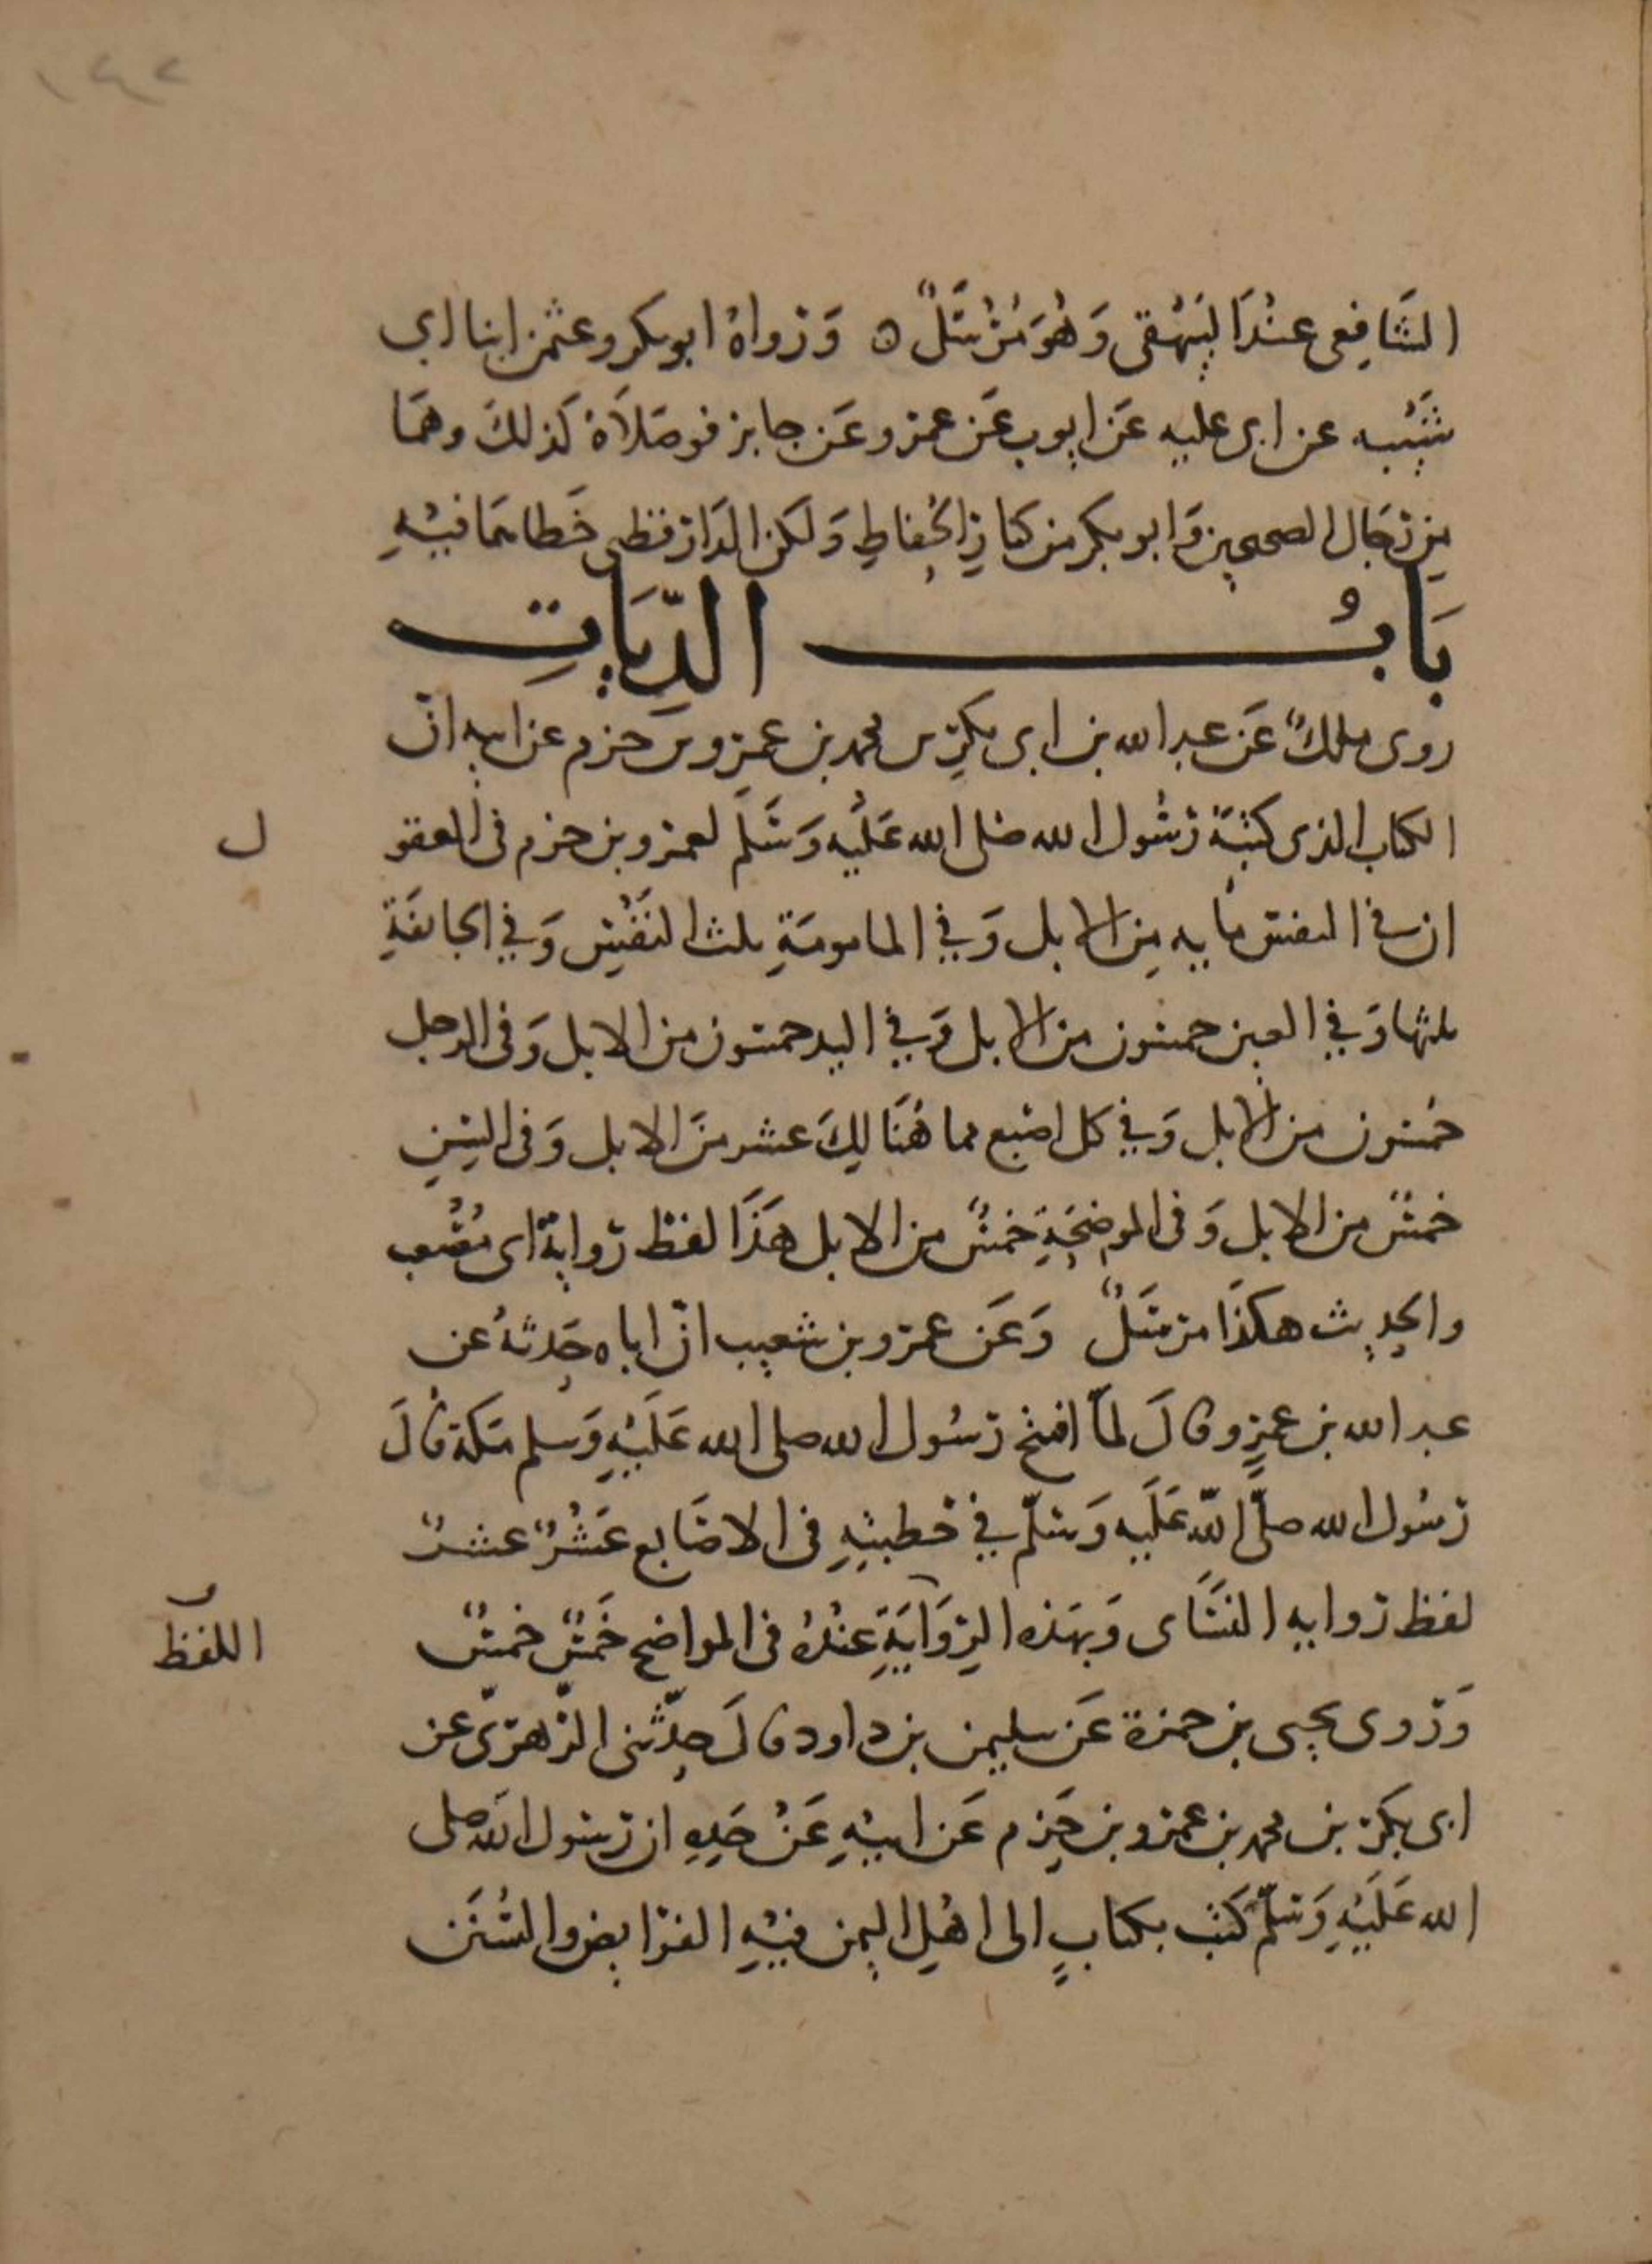 ١٤٢
الشَّافِعى عنْدَ البَيْهَقى وَهُوَ مُرْسَلٌ ٥ وَرَواهُ ابوبكر وعثمن ابنا ابى
شَيْبه عن ابى عليه عَن ايوب عَن عمرو عَن جابر فوصَلاَهُ كَذلكَ وهمَا
مِن رجَال الصحيحين وَابو بكر من كبارِ الحُفاظِ وَلكن الدَارقطنى خَطاهمَا فيْهِ
بَابُ الدِّيَاتِ
روى ملكٌ عَن عبد الله بن ابى بكرِ بن محمد بن عمرو بن حزم عن ابيه انّ
الكتاب الذى كتبَهُ رَسُول الله صلى الله عَليْه وَسَلم لعمرو بن حزم فى العقو
ل
ان فى النفس مايه مِن الابل وَفي المامومَةِ ثلث النَفْسِ وَفي الجائفَةِ
ثلثها وَفي العين خمسون من الابل وَفي اليد خمسون من الابل وَفى الرجل
خمسون من الابل وَفي كل اصبع مما هُنَالِكَ عشر منَ الابل وَفى السِنِ
خمسٌ من الابل وَفى الموضِحَةِ خمسٌ من الابل هَذَا لفظ رواية ابى مُصْعب
والحديث هكذَا مرسَلٌ وَعَن عمرو بن شعيب انّ اباه حَدثهُ عن
عبد الله بن عمرٍو قالَ لمَّا افتتح رَسُول الله صلى الله عَلَيْهِ وَسلم مَكة قالَ
رَسُول الله صلَّى اللّه عَلَيه وَسَلّم في خطبتِهِ فى الاصَابع عَشْرٌ عشرٌ
لفظ روايه النسَاى وَبهَذه الرِوَايَةِ عنْدهُ فى المواضح خَمسٌ خمسٌ
اللفظ
وَرَوى يحيى بن حمزة عَن سليمن بن داود قالَ حدّثنى الزّهرىّ عن
ابى بكرِ بن محمد بن عمرو بن حَزم عَن ابيْهِ عَنْ جَدِهِ ان رَسول الله صلى
الله عَلَيْهِ وَسَلّم كَتب بكتابٍ الى اهْلِ اليمن فيْهِ الفرَايض والسُنَن